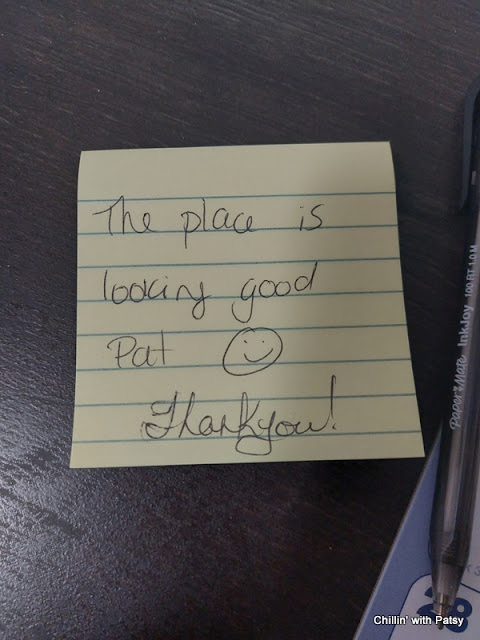 The place is
looking good
Pat
Thankyou!
Paper Mate InkJoy 100RT 1.0M
Chillin' with Patsy